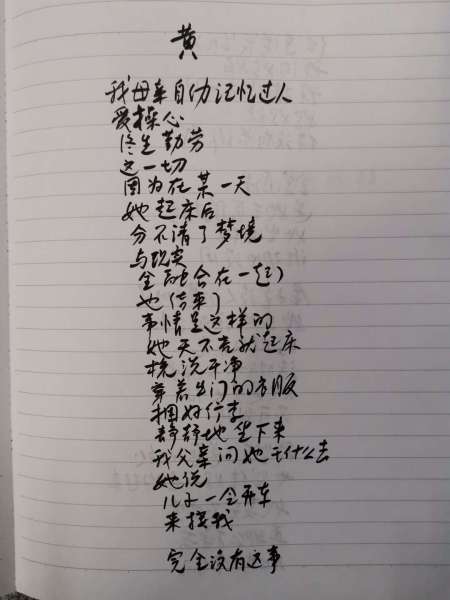 黄
我母亲自幼记忆过人
爱操心
终生勤劳
这一切
因为在某一天
她起床后
分不清了梦境
与现实
全融合在一起了
她信来了
事情是这样的
她天不亮就起床
梳洗干净
穿着出门的衣服
捆好行李
静静地坐下来
我父亲问她干什么去
她说
儿子一会开车
来接我
完全没有这事